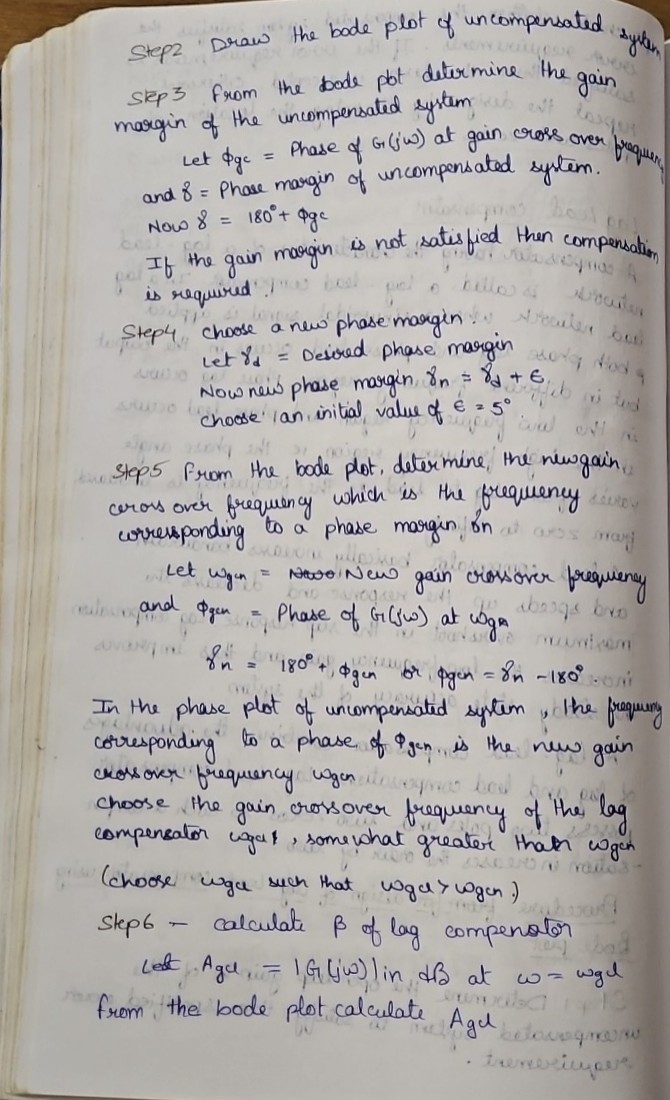 Step2 Draw the bode plot of uncompensated system
Step3 From the bode plot determine the gain
margin of the uncompensated system
Let φgc = Phase of G(jω) at gain cross over frequency
and γ = Phase margin of uncompensated system.
Now γ = 180° + φgc
If the gain margin is not satisfied then compensation
is required.
Step4 choose a new phase margin.
Let γd = Desired phase margin
Now new phase margin γn = γd + ϵ
choose an initial value of ϵ = 5°
Step5 From the bode plot, determine the new gain
cross over frequency which is the frequency
corresponding to a phase margin γn
Let ωgcn = New gain crossover frequency
and φgcn = Phase of G(jω) at ωgcn
γn = 180° + φgcn or φgcn = γn - 180°.
In the phase plot of uncompensated system, the frequency
corresponding to a phase of φgcn is the new gain
crossover frequency ωgcn
choose the gain crossover frequency of the lag
compensator ωgcl, somewhat greater than ωgcn
(choose ωgcl such that ωgcl > ωgcn)
Step6 - calculate β of lag compensator
Let Agcl = |G(jω)| in dB at ω = ωgcl
from the bode plot calculate Agcl